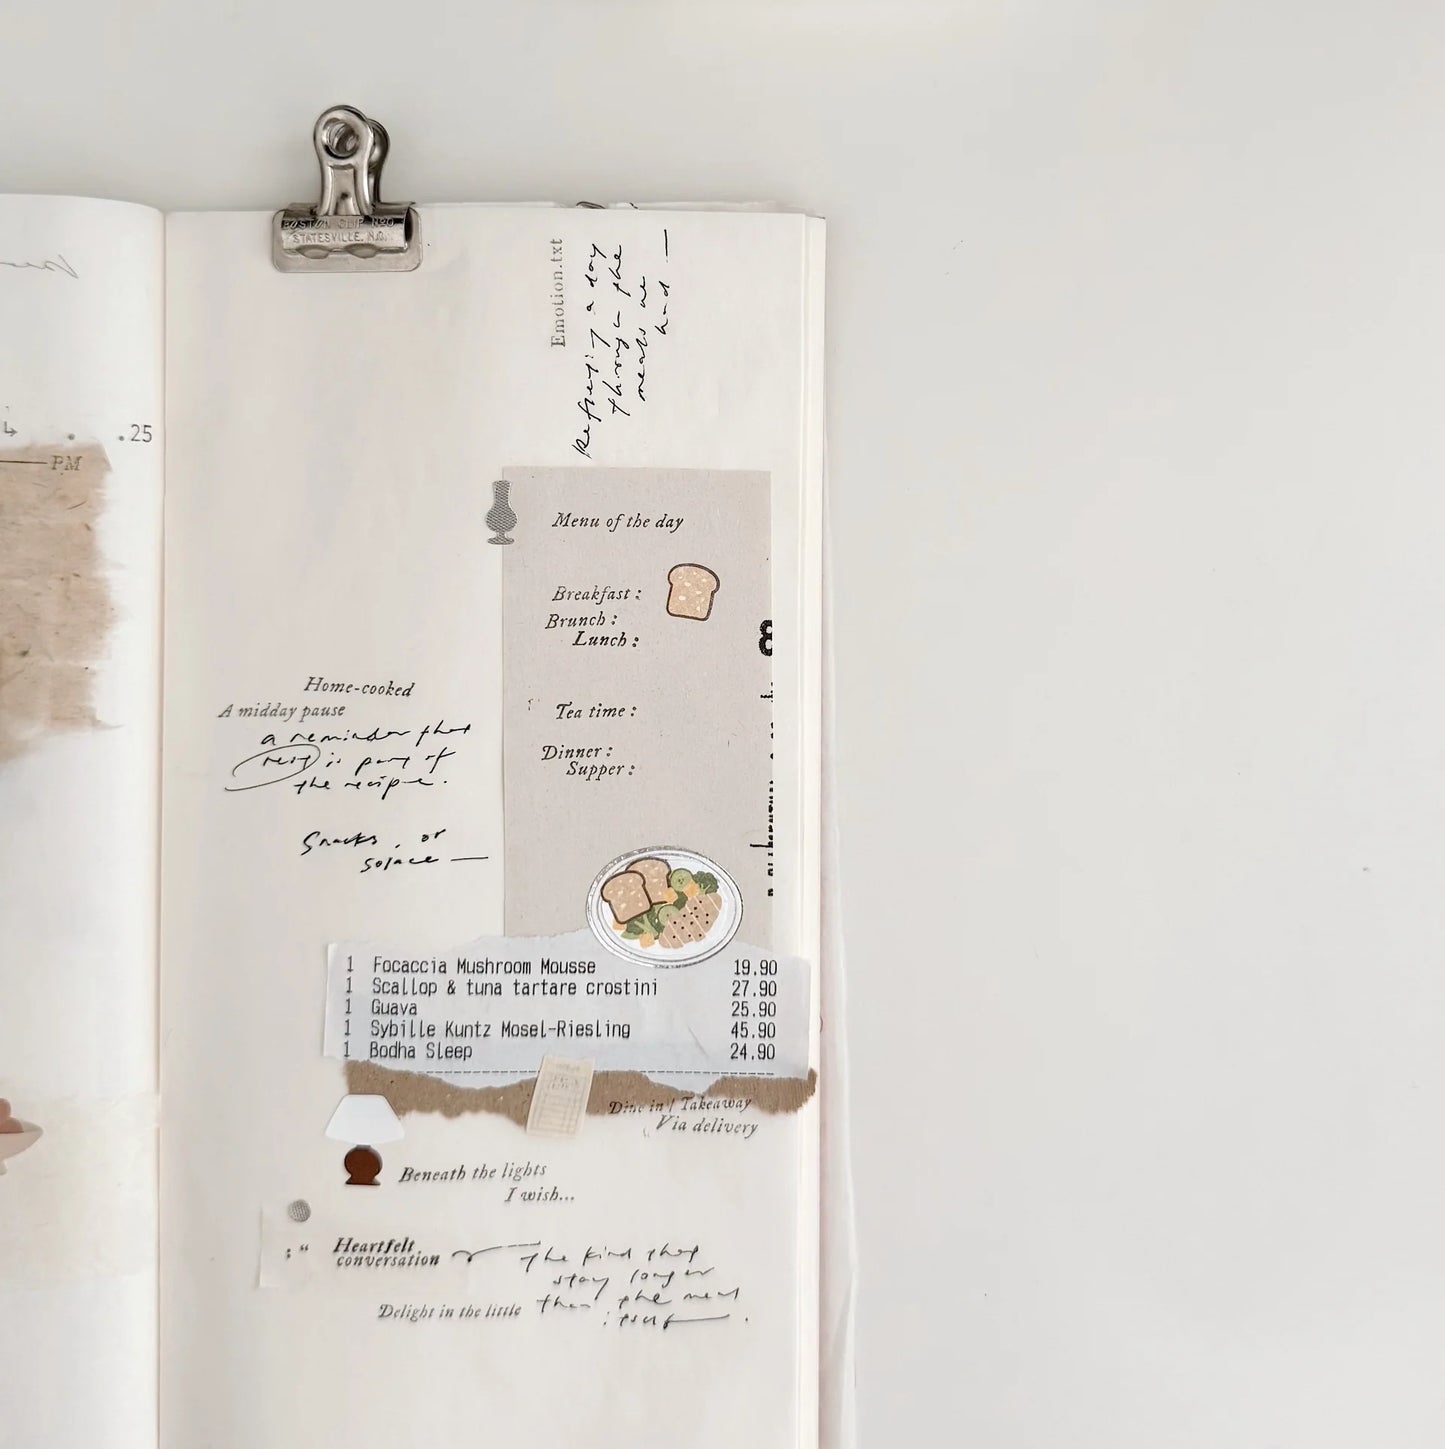 BOSTON CLIP No.
STATESVILLE. N.C.
.25
PM
Emotion.txt
a day
through the
meals we
had —
Menu of the day
Breakfast :
Brunch :
Lunch :
Tea time :
Dinner :
Supper :
8
Home-cooked
A midday pause
a reminder that
rest is part of
the recipe.
Snacks, or
solace —
1 Focaccia Mushroom Mousse 19.90
1 Scallop & tuna tartare crostini 27.90
1 Guava 25.90
1 Sybille Kuntz Mosel-Riesling 45.90
1 Bodha Sleep 24.90
Dine in / Takeaway
Via delivery
Beneath the lights
I wish...
: “ Heartfelt
conversation
the kind that
stay longer
than the meal
itself — .
Delight in the little